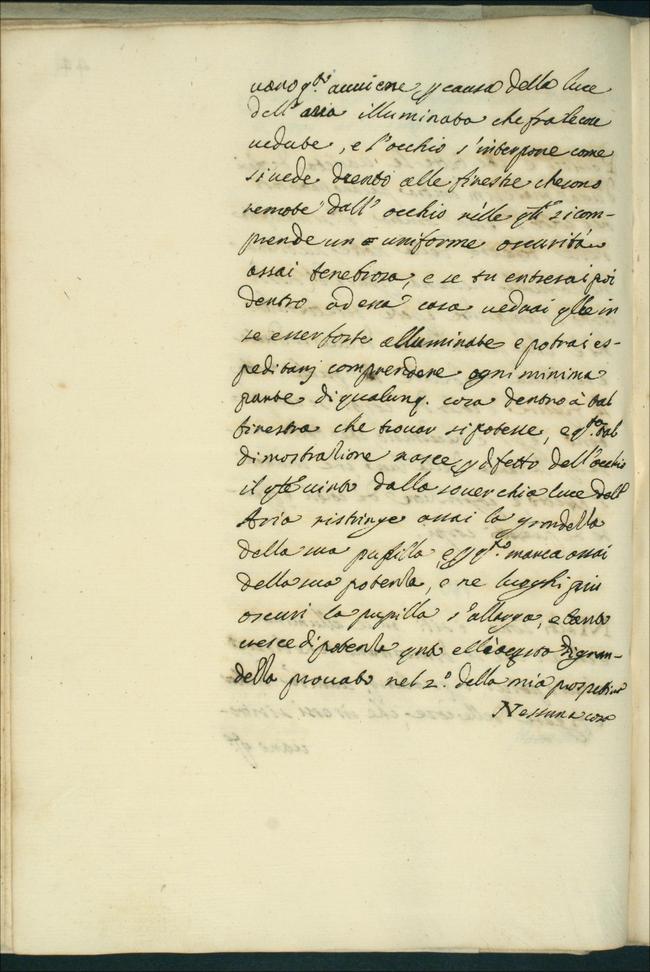 uano q.to auuiene p causa della luce
dell' aria illuminata che fra le cose
uedute, e l'occhio s'interpone come
si uede drento alle finestre che sono
remote dall' occhio nelle q.li si com-
prende un uniforme oscurità
assai tenebrosa, e se tu entrerai poi
dentro ad essa casa uedrai q.lle in
se esser forte alluminate e potrai es-
peditam comprendere ogni minima
parte di qualunq. cosa dentro à tal
finestra che trouar si potesse, e q.ta tal
dimostratione nasce p difetto dell'occhio
il q.le uinto dalla souerchia luce dell'
Aria ristringe assai la grandezza
della sua pupilla, e p q.to manca assai
della sua potenza, e ne luoghi piu
oscuri la pupilla s'allarga, e tanto
cresce di potenza qua ell'acquista di gran-
dezza prouato nel 2.o della mia prospettiua
Nessuna cosa